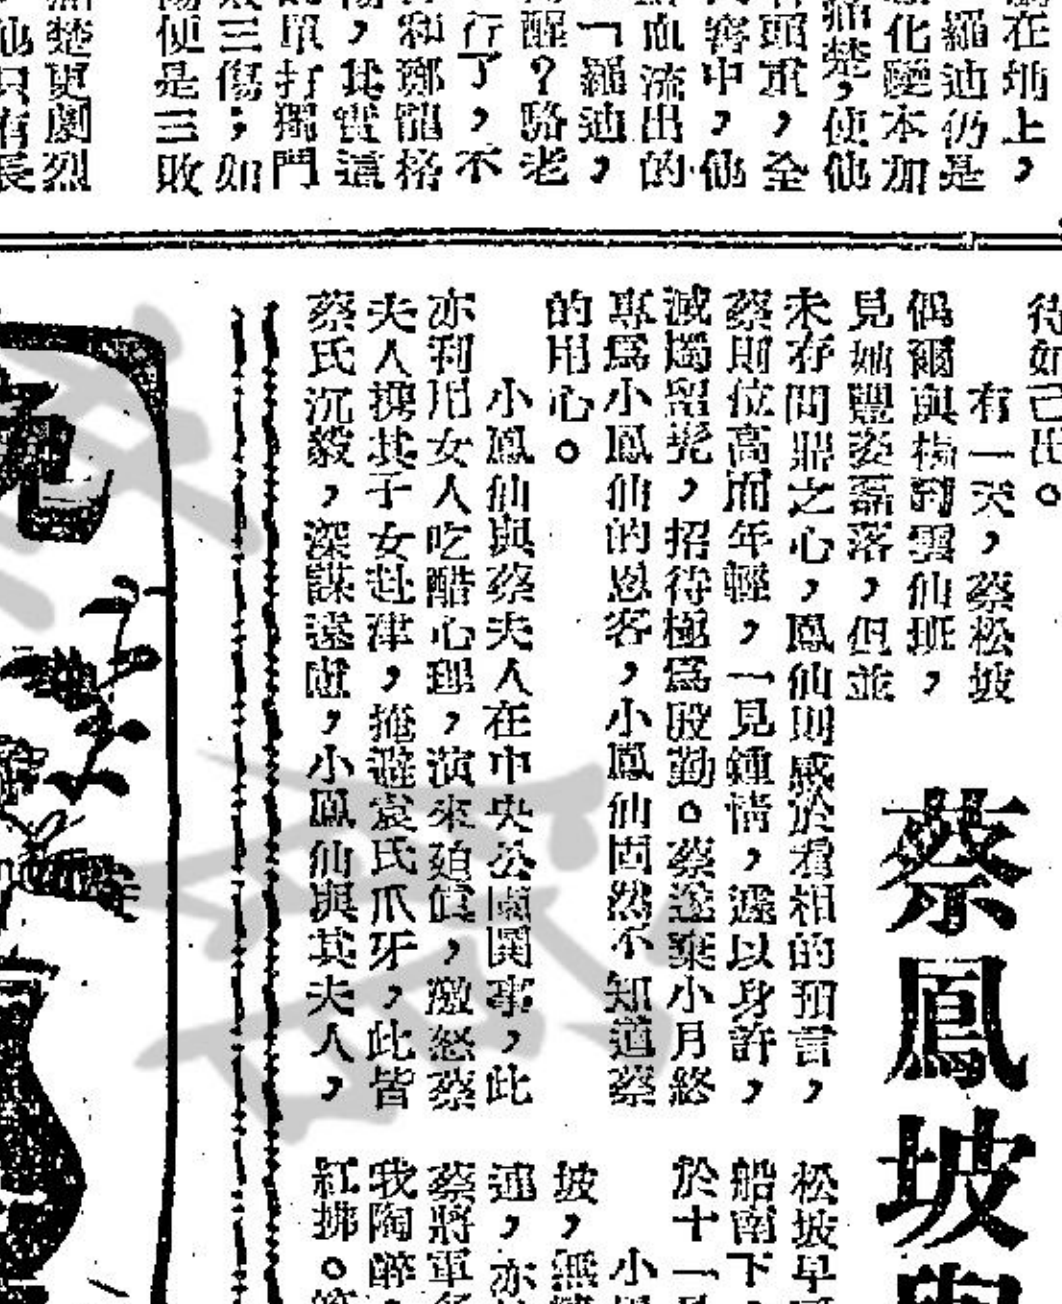 在地上，
羅迪仍是
化變本加
痛楚，使他
頭重，全
害中，他
血流出的
「羅迪，
醒？駱老
行了，不
和鄭龍格
，其實這
單打獨鬥
三傷；如
便是三敗
楚更劇烈
待如己出。
有一天，蔡松坡
偶爾與梅到雲仙班，
見她豐姿磊落，但並
未存問鼎之心，鳳仙則感於看相的預言，
蔡則位高而年輕，一見鍾情，遂以身許，
滅燭留髡，招待極爲殷勤。蔡遂棄小月終
專爲小鳳仙的恩客，小鳳仙固然不知道蔡
的用心。
小鳳仙與蔡夫人在中央公園鬨事，此
亦利用女人吃醋心理，演來廹眞，激怒蔡
夫人携其子女赴津，掩避袁氏爪牙，此皆
蔡氏沉毅，深謀遠慮，小鳳仙與其夫人，
蔡鳳坡與
松坡早
船南下
於十一
小
坡，無
連，亦
蔡將軍
我陶醉
紅拂。